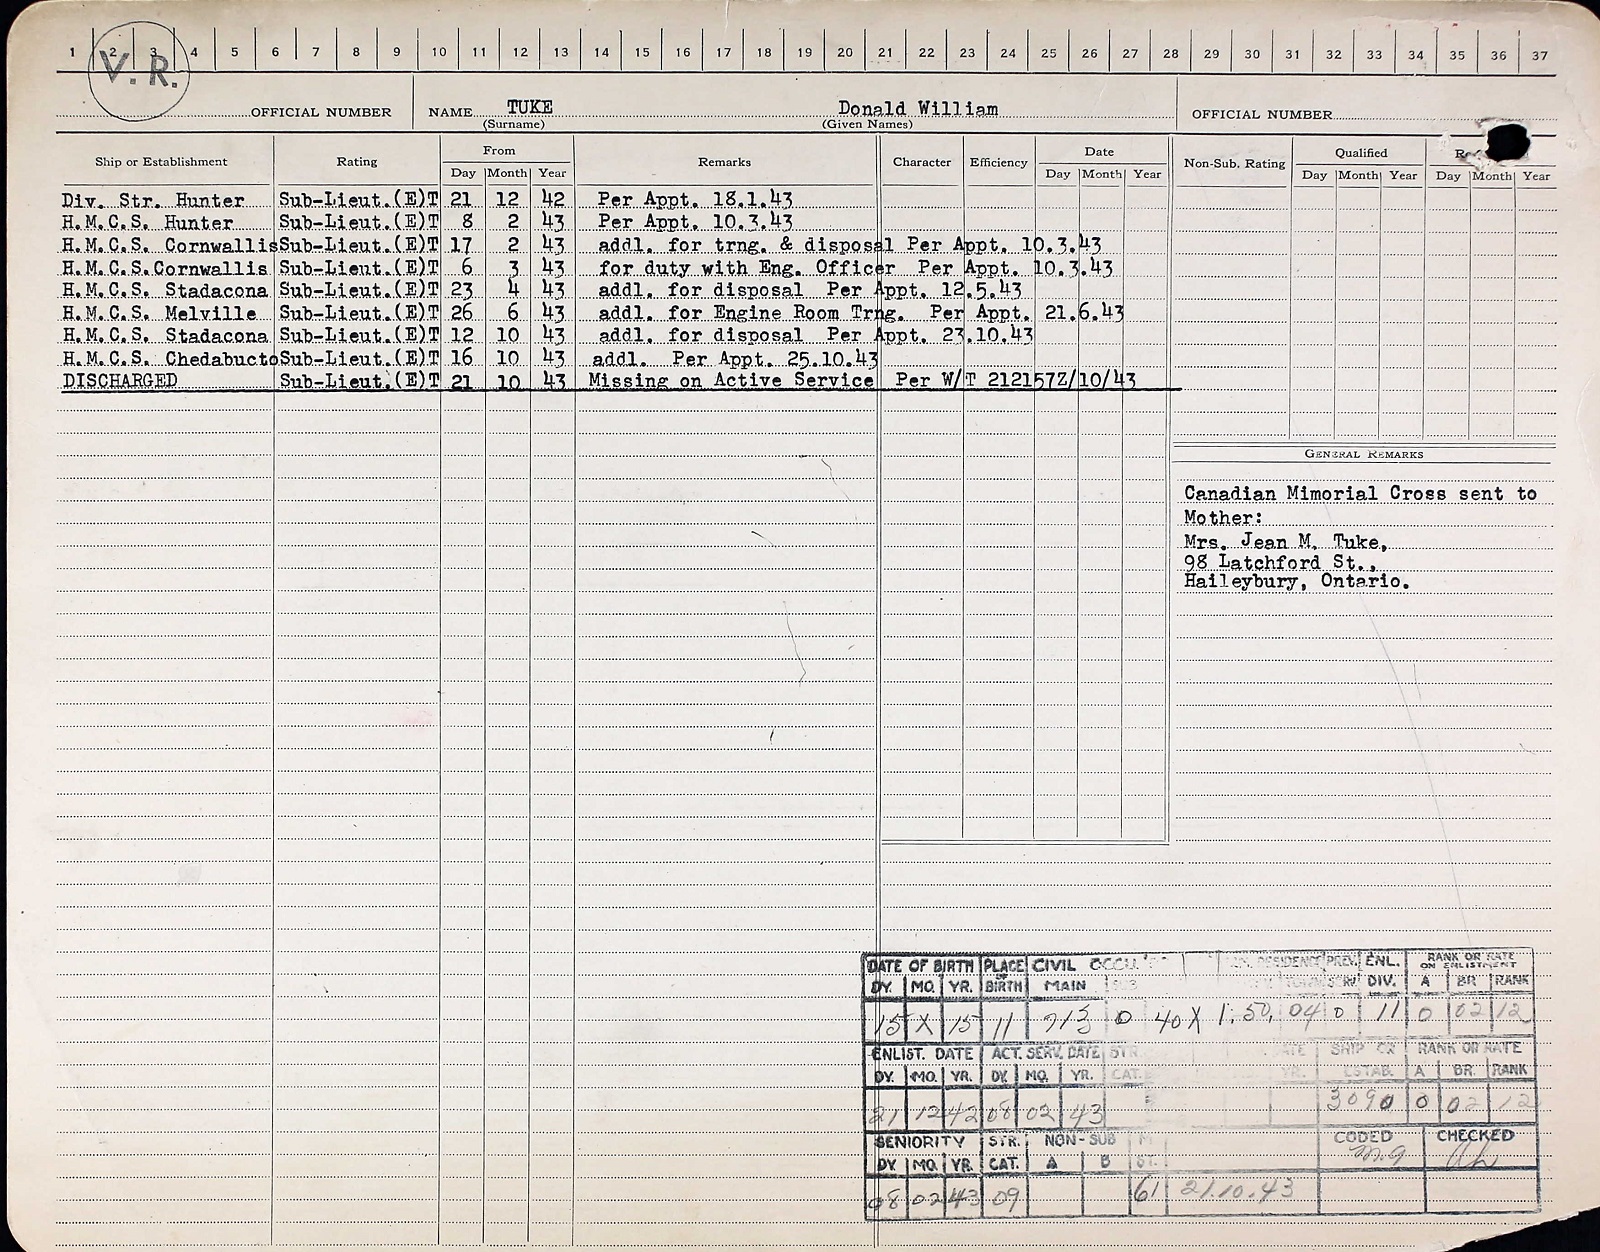 1 2 3 4 5 6 7 8 9 10 11 12 13 14 15 16 17 18 19 20 21 22 23 24 25 26 27 28 29 30 31 32 33 34 35 36 37
V. R.
OFFICIAL NUMBER NAME TUKE Donald William OFFICIAL NUMBER
(Surname) (Given Names)
Ship or Establishment Rating From Remarks Character Efficiency Date Non-Sub. Rating Qualified
Day Month Year Day Month Year Day Month Year Day Month Year
Div. Str. Hunter Sub-Lieut.(E)T 21 12 42 Per Appt. 18.1.43
H.M.C.S. Hunter Sub-Lieut.(E)T 8 2 43 Per Appt. 10.3.43
H.M.C.S. Cornwallis Sub-Lieut.(E)T 17 2 43 addl. for trng. & disposal Per Appt. 10.3.43
H.M.C.S.Cornwallis Sub-Lieut.(E)T 6 3 43 for duty with Eng. Officer Per Appt. 10.3.43
H.M.C.S. Stadacona Sub-Lieut.(E)T 23 4 43 addl. for disposal Per Appt. 12.5.43
H.M.C.S. Melville Sub-Lieut.(E)T 26 6 43 addl. for Engine Room Trng. Per Appt. 21.6.43
H.M.C.S. Stadacona Sub-Lieut.(E)T 12 10 43 addl. for disposal Per Appt. 23.10.43
H.M.C.S. Chedabucto Sub-Lieut.(E)T 16 10 43 addl. Per Appt. 25.10.43
DISCHARGED Sub-Lieut.(E)T 21 10 43 Missing on Active Service Per W/T 212157Z/10/43
GENERAL REMARKS
Canadian Mimorial Cross sent to
Mother:
Mrs. Jean M. Tuke,
98 Latchford St.,
Haileybury, Ontario.
DATE OF BIRTH PLACE OF BIRTH CIVIL RESIDENCE PREV. SERV. ENL. DIV. RANK OR RATE ON ENLISTMENT
DY. MO. YR. MAIN SUB A BR RANK
15 X 15 11 913 0 40X 1.50, 04 0 11 0 02 12
ENLIST. DATE ACT. SERV. DATE STR. CAT. SHIP OR ESTAB. RANK OR RATE
DY. MO. YR. DY. MO. YR. YR. A BR. RANK
21 12 42 08 02 43 3090 0 02 12
SENIORITY STR. CAT. NON-SUB CODED CHECKED
DY. MO. YR. A B ST.
08 02 43 09 61 21.10.43